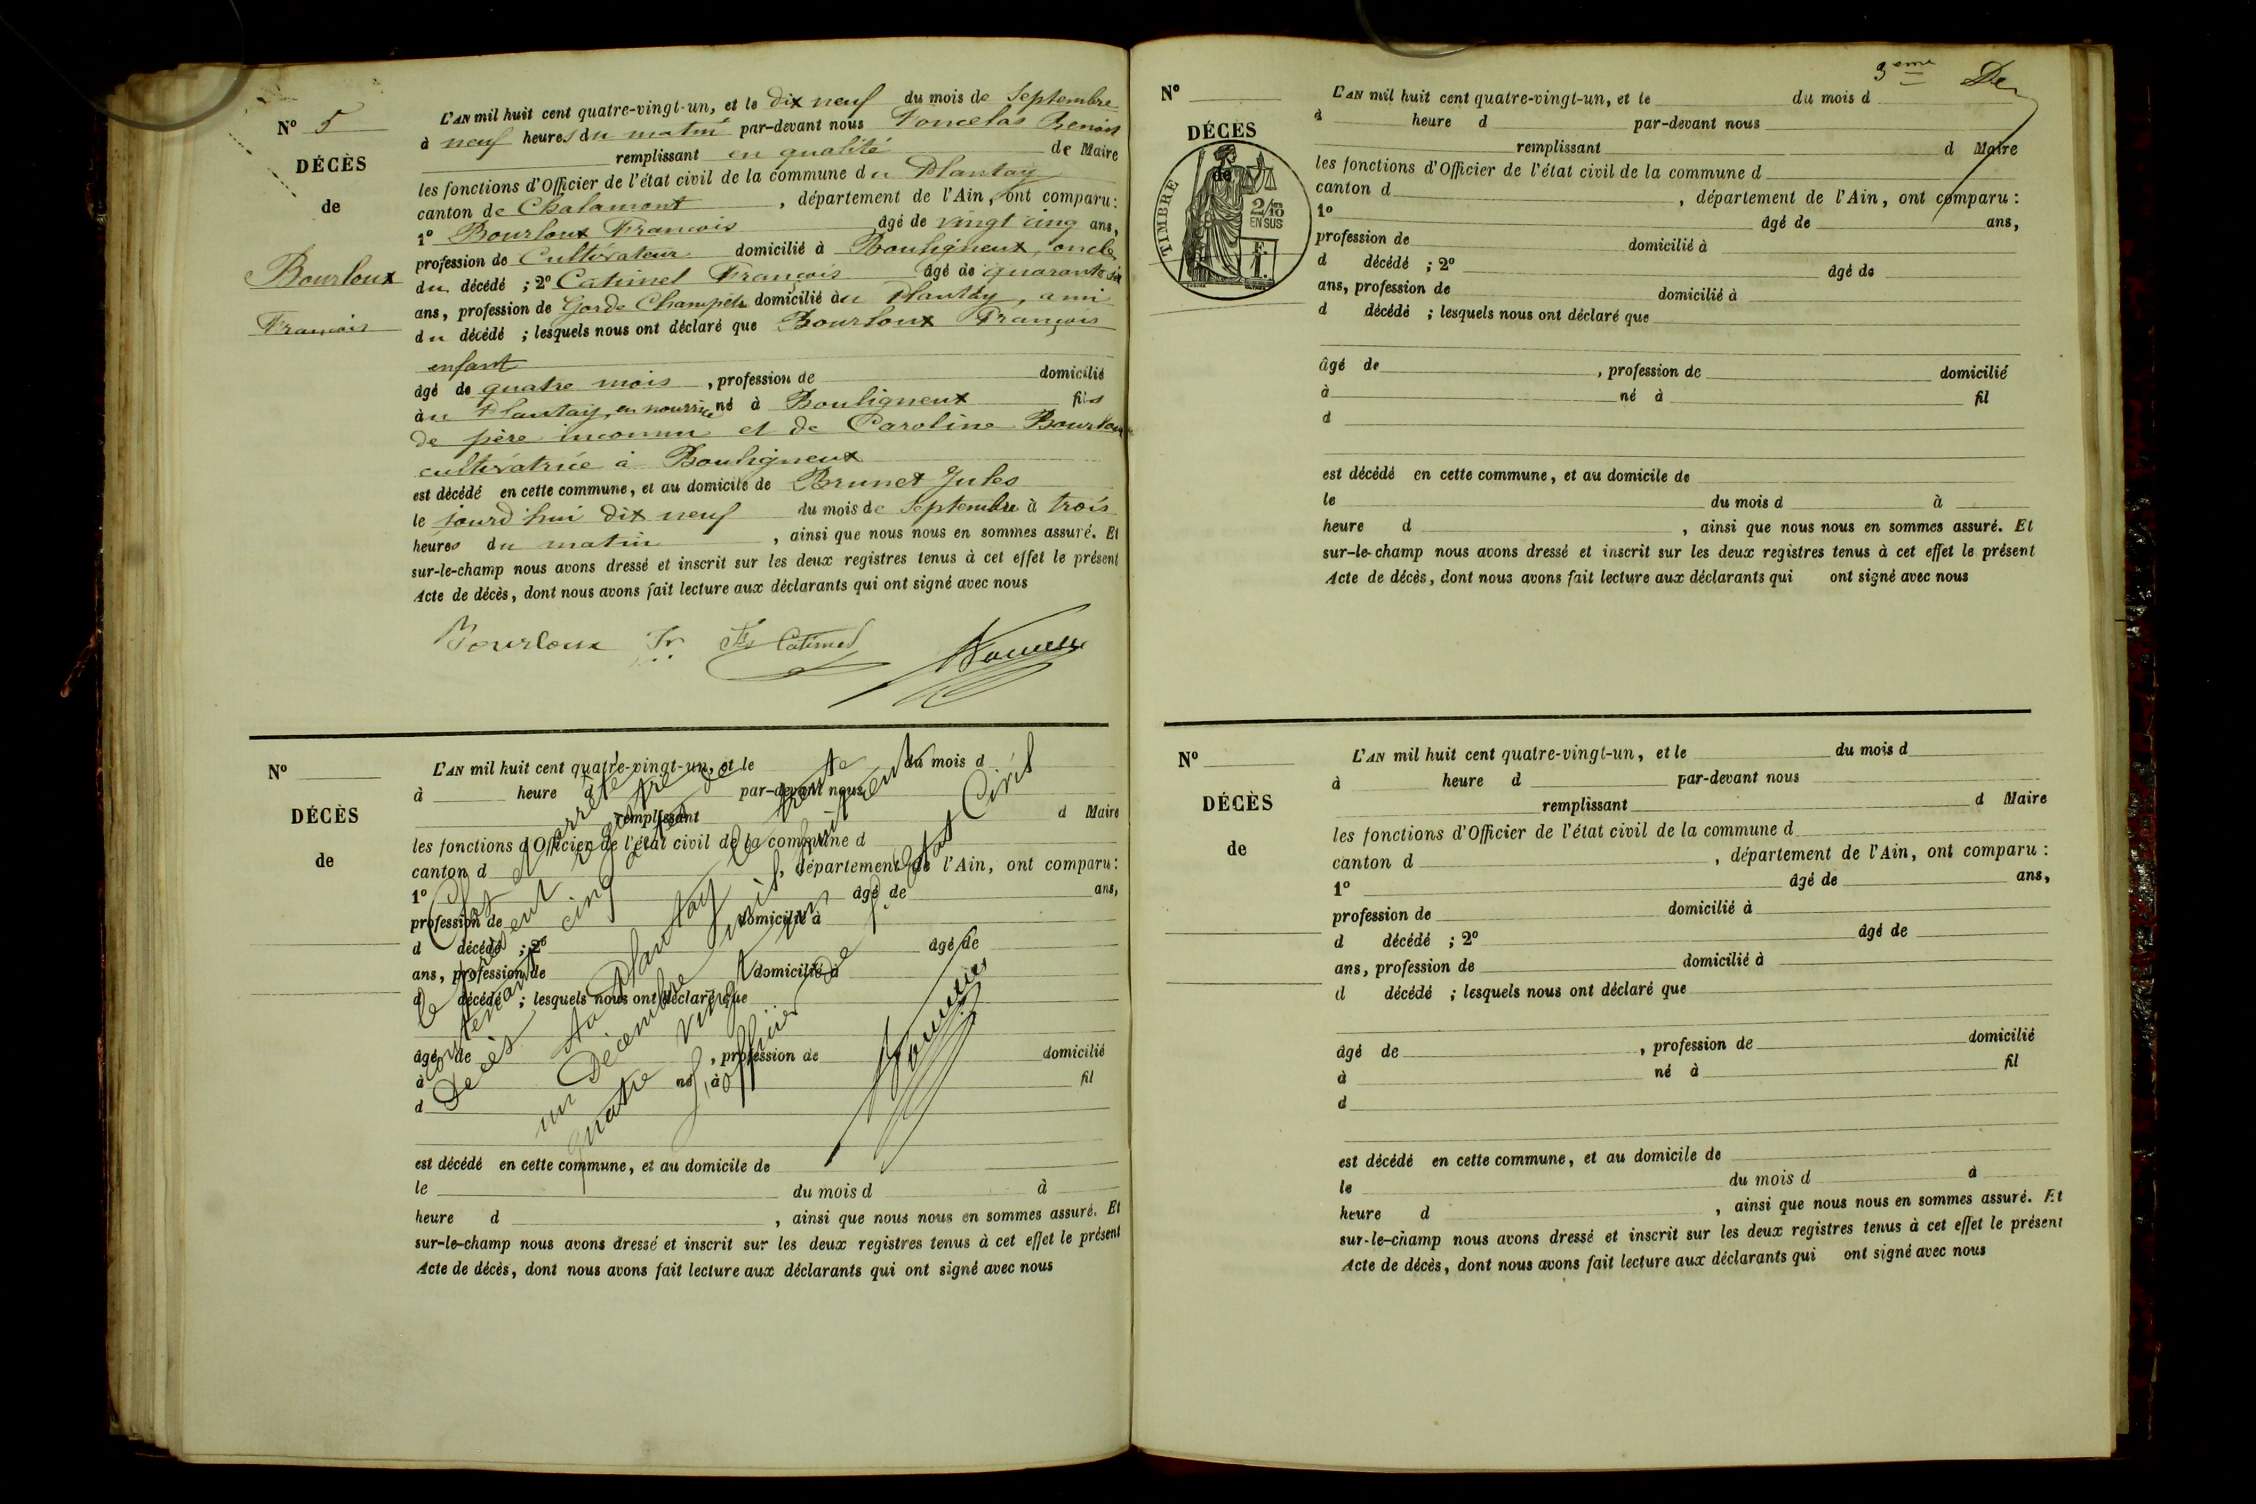 N° 5
DÉCÈS
de
Bourloux
François
L'AN mil huit cent quatre-vingt-un, et le dix neuf du mois de Septembre
à neuf heures du matin par-devant nous Benoit
remplissant en qualité de Maire
les fonctions d'Officier de l'état civil de la commune du Plantay
canton de Chalamont, département de l'Ain, ont comparu:
1° Bourloux François âgé de vingt cinq ans,
profession de Cultivateur domicilié à Bouligneux, oncle
du décédé ; 2° Catimel François âgé de quarante six
ans, profession de Garde Champêtre domicilié au Plantay, ami
du décédé ; lesquels nous ont déclaré que Bourloux François
enfant
âgé de quatre mois, profession de domicilié
au Plantay, en nourrice né à Bouligneux fils
de père inconnu et de Caroline Bourloux
cultivatrice à Bouligneux
est décédé en cette commune, et au domicile de Brunet Jules
le jourd'hui dix neuf du mois de Septembre à trois
heures du matin, ainsi que nous nous en sommes assuré. Et
sur-le-champ nous avons dressé et inscrit sur les deux registres tenus à cet effet le présent
Acte de décès, dont nous avons fait lecture aux déclarants qui ont signé avec nous
Bourloux Fr. Catimel
N°
DÉCÈS
de
L'AN mil huit cent quatre-vingt-un, et le du mois d
à heure d par-devant nous
remplissant d Maire
les fonctions d'Officier de l'état civil de la commune d
canton d , département de l'Ain, ont comparu:
1° âgé de ans,
profession de domicilié à
d décédé ; 2° âgé de
ans, profession de domicilié à
d décédé ; lesquels nous ont déclaré que
âgé de , profession de domicilié
à né à fil
d
est décédé en cette commune, et au domicile de
le du mois d à
heure d , ainsi que nous nous en sommes assuré. Et
sur-le-champ nous avons dressé et inscrit sur les deux registres tenus à cet effet le présent
Acte de décès, dont nous avons fait lecture aux déclarants qui ont signé avec nous
Clos et arrêté
le présent registre de
contenant cinq actes de
Décès
Au Plantay le trente
un Décembre mil huit cent
quatre vingt un
l'officier de l'état Civil
3eme
N°
DÉCÈS
de
TIMBRE
2/10
EN SUS
L'AN mil huit cent quatre-vingt-un, et le du mois d
à heure d par-devant nous
remplissant d Maire
les fonctions d'Officier de l'état civil de la commune d
canton d , département de l'Ain, ont comparu :
1° âgé de ans,
profession de domicilié à
d décédé ; 2° âgé de
ans, profession de domicilié à
d décédé ; lesquels nous ont déclaré que
âgé de , profession de domicilié
à né à fil
d
est décédé en cette commune, et au domicile de
le du mois d à
heure d , ainsi que nous nous en sommes assuré. Et
sur-le-champ nous avons dressé et inscrit sur les deux registres tenus à cet effet le présent
Acte de décès, dont nous avons fait lecture aux déclarants qui ont signé avec nous
N°
DÉCÈS
de
L'AN mil huit cent quatre-vingt-un, et le du mois d
à heure d par-devant nous
remplissant d Maire
les fonctions d'Officier de l'état civil de la commune d
canton d , département de l'Ain, ont comparu :
1° âgé de ans,
profession de domicilié à
d décédé ; 2° âgé de
ans, profession de domicilié à
d décédé ; lesquels nous ont déclaré que
âgé de , profession de domicilié
à né à fil
d
est décédé en cette commune, et au domicile de
le du mois d à
heure d , ainsi que nous nous en sommes assuré. Et
sur-le-champ nous avons dressé et inscrit sur les deux registres tenus à cet effet le présent
Acte de décès, dont nous avons fait lecture aux déclarants qui ont signé avec nous